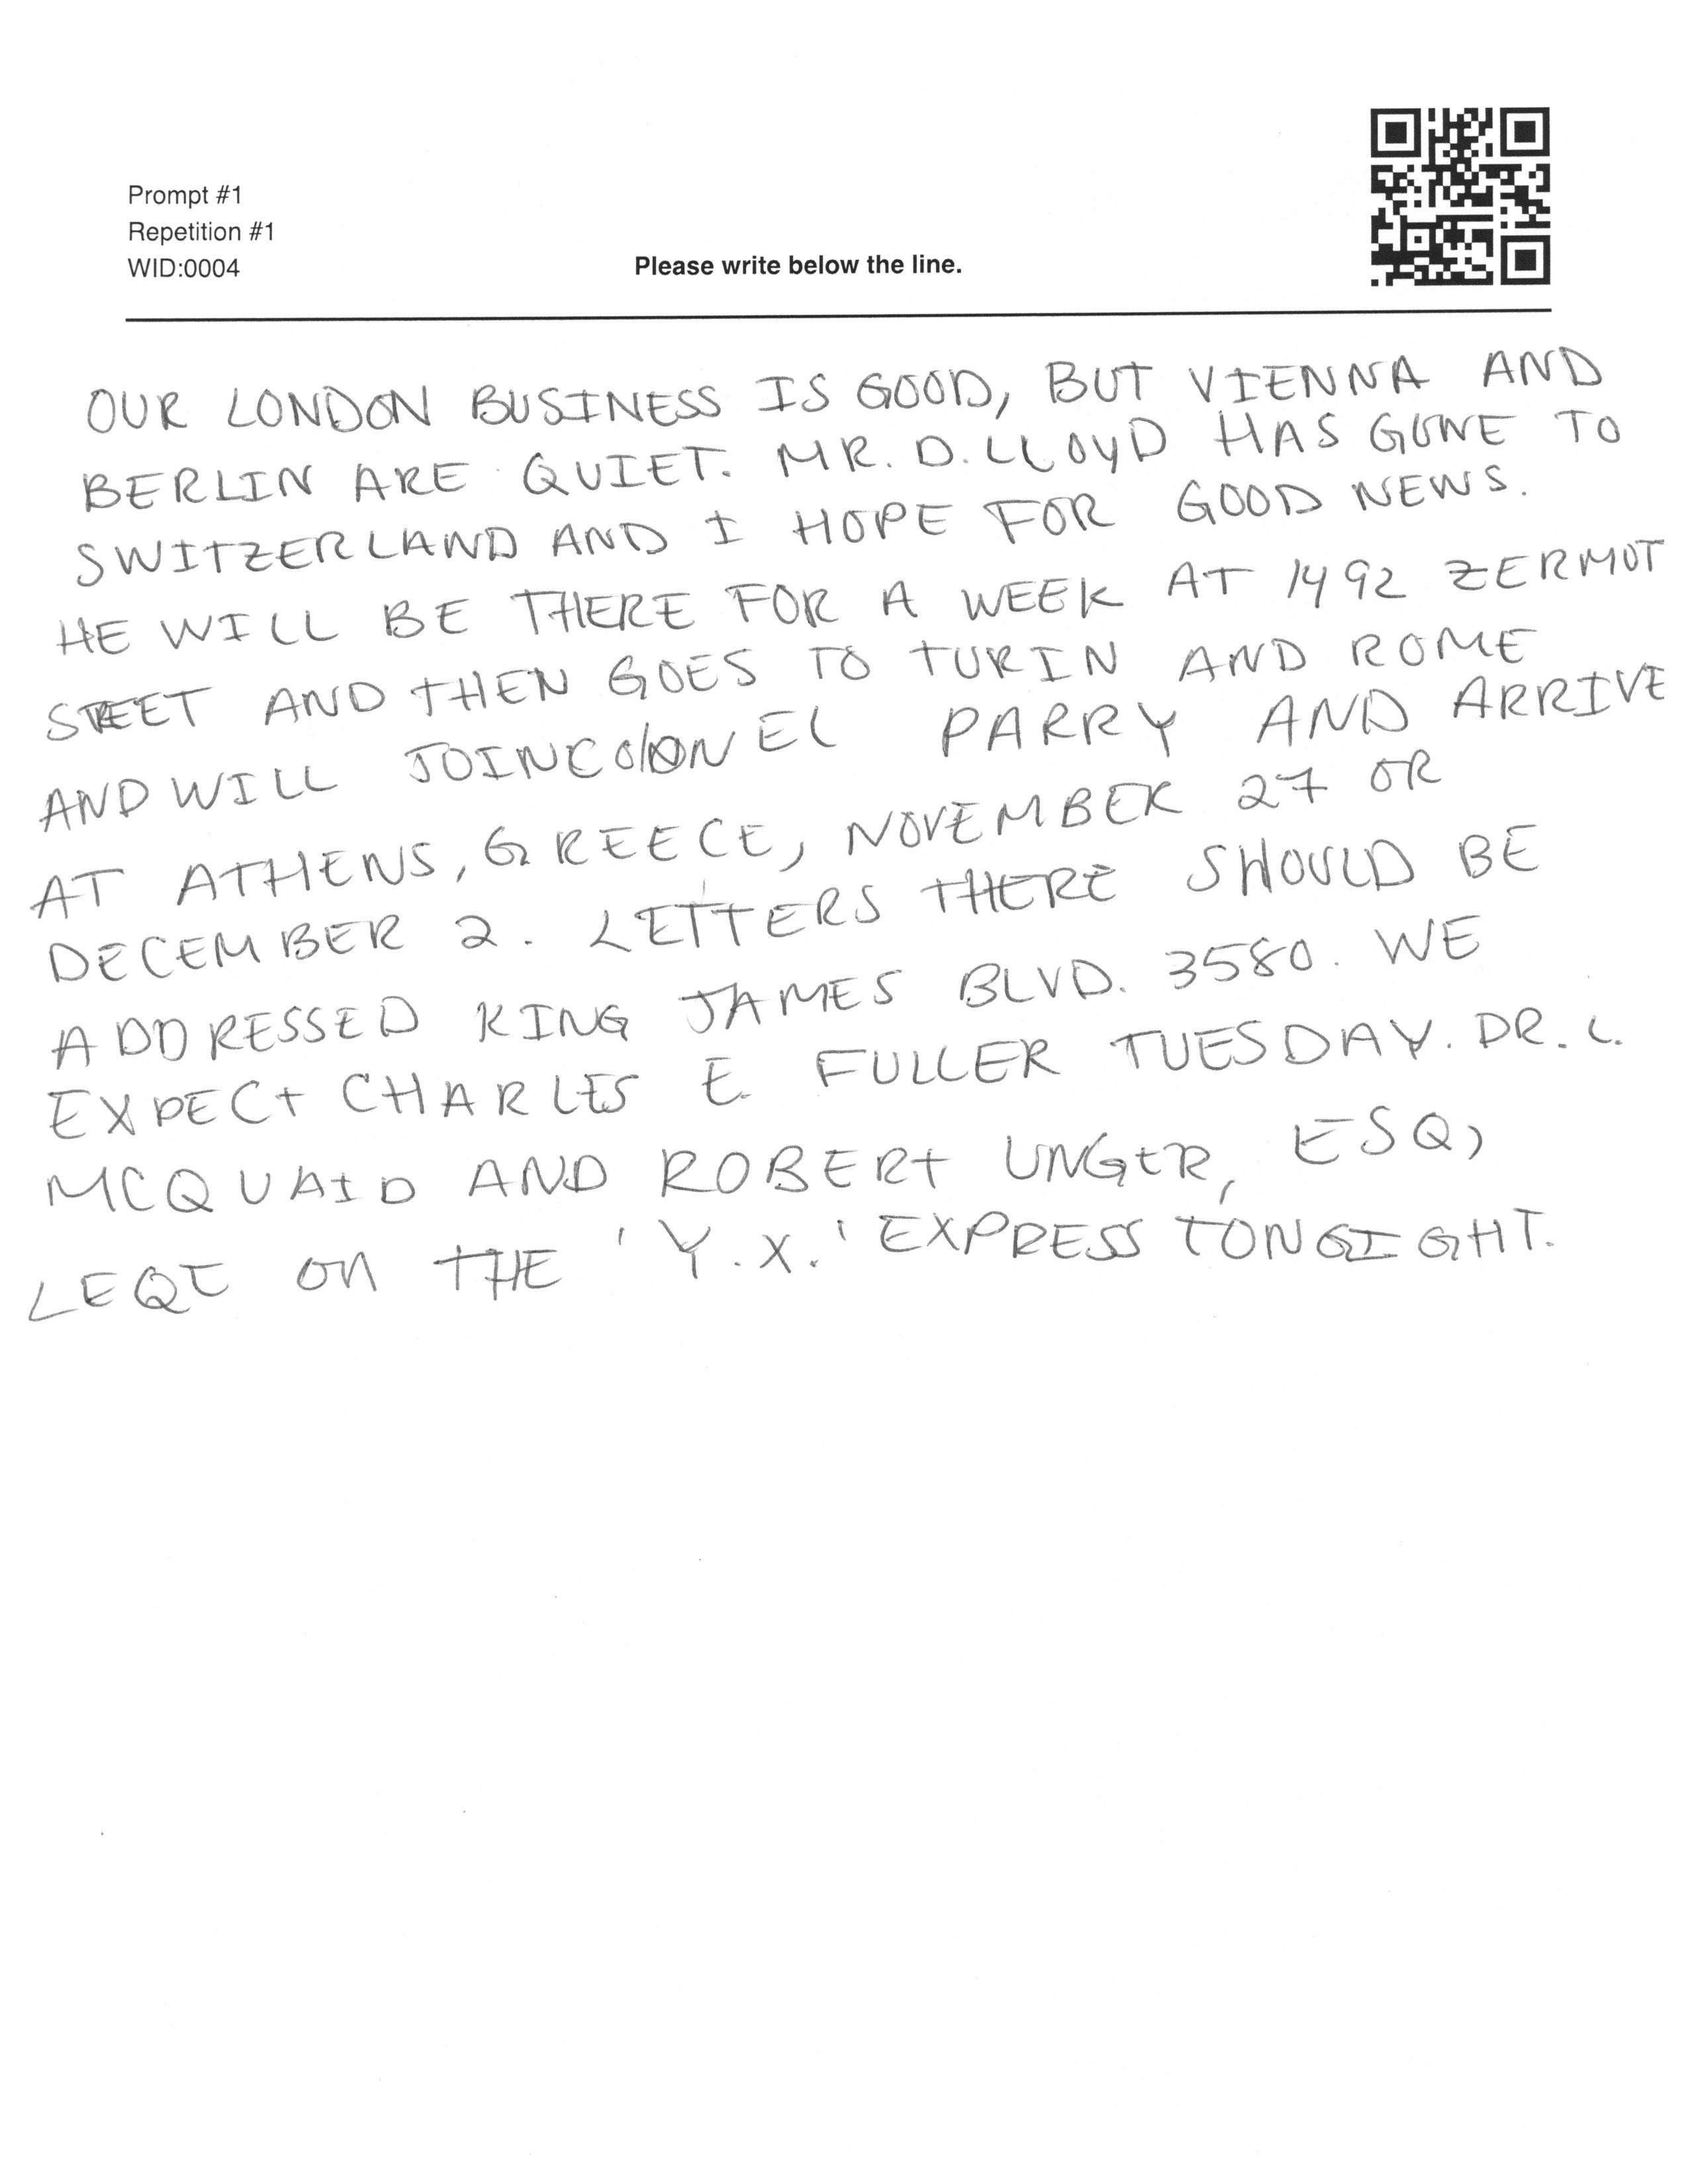 Prompt #1
Repetition #1
WID:0004
Please write below the line.
OUR LONDON BUSINESS IS GOOD, BUT VIENNA AND
BERLIN ARE QUIET. MR. D. LLOYD HAS GONE TO
SWITZERLAND AND I HOPE FOR GOOD NEWS.
HE WILL BE THERE FOR A WEEK AT 1492 ZERMOT
STEET AND THEN GOES TO TURIN AND ROME
AND WILL JOIN COLONEL PARRY AND ARRIVE
AT ATHENS, GREECE, NOVEMBER 27 OR
DECEMBER 2. LETTERS THERE SHOULD BE
ADDRESSED KING JAMES BLVD. 3580. WE
EXPECT CHARLES E. FULLER TUESDAY. DR. L.
MCQUAID AND ROBERT UNGER, ESQ,
LEQT ON THE 'Y.X.' EXPRESS TONGIGHT.